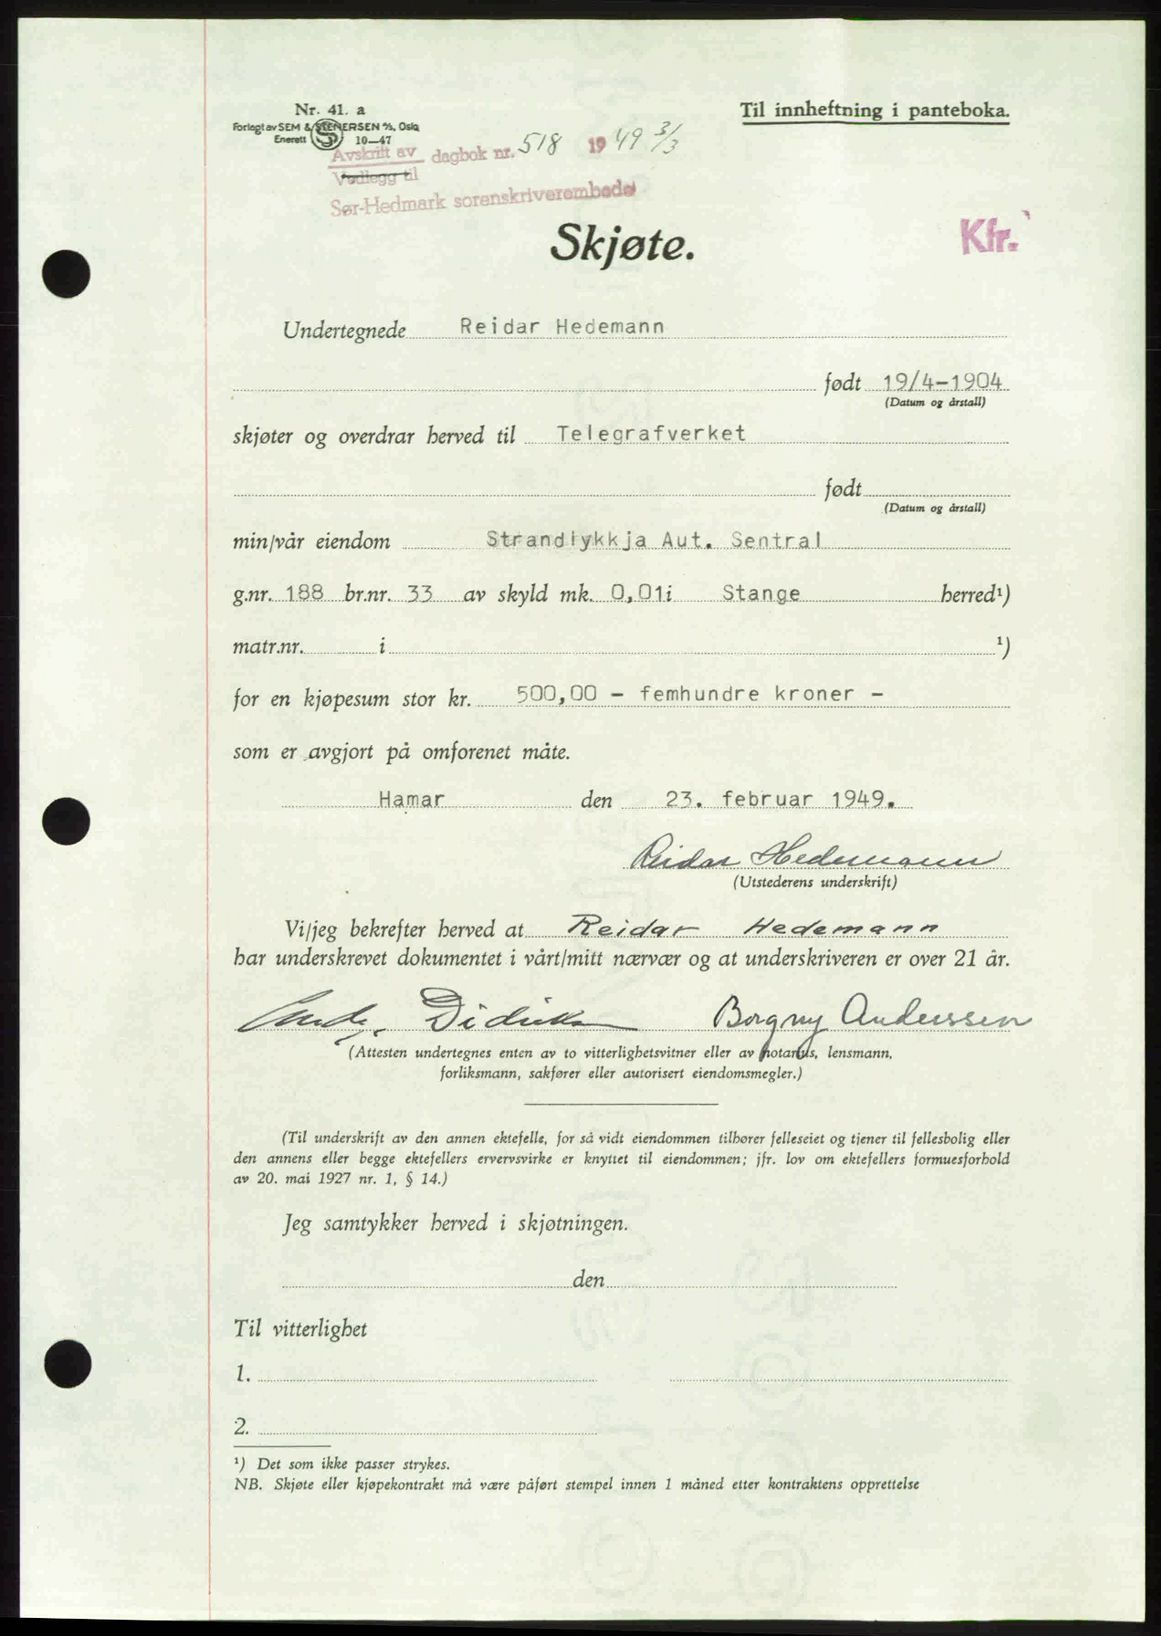 Nr. 41. a
Til innheftning i panteboka.
Forlagt av SEM & STENERSEN A/S, Oslo
Enerett 10—47
Avskrift av dagbok nr. 518 1949 3/3
Vedlegg til
Sør-Hedmark sorenskriverembede
Skjøte.
Kfr.
Undertegnede Reidar Hedemann
født 19/4-1904
(Datum og årstall)
skjøter og overdrar herved til Telegrafverket
født
(Datum og årstall)
min/vår eiendom Strandlykkja Aut. Sentral
g.nr. 188 br.nr. 33 av skyld mk. 0,01 i Stange herred¹)
matr.nr. i ¹)
for en kjøpesum stor kr. 500,00 - femhundre kroner -
som er avgjort på omforenet måte.
Hamar den 23. februar 1949.
Reidar Hedemann
(Utstederens underskrift)
Vi/jeg bekrefter herved at Reidar Hedemann
har underskrevet dokumentet i vårt/mitt nærvær og at underskriveren er over 21 år.
Borgny Anderssen
(Attesten undertegnes enten av to vitterlighetsvitner eller av notarius, lensmann,
forliksmann, sakfører eller autorisert eiendomsmegler.)
(Til underskrift av den annen ektefelle, for så vidt eiendommen tilhører felleseiet og tjener til fellesbolig eller
den annens eller begge ektefellers ervervsvirke er knyttet til eiendommen; jfr. lov om ektefellers formuesforhold
av 20. mai 1927 nr. 1, § 14.)
Jeg samtykker herved i skjøtningen.
den
Til vitterlighet
1.
2.
¹) Det som ikke passer strykes.
NB. Skjøte eller kjøpekontrakt må være påført stempel innen 1 måned etter kontraktens opprettelse